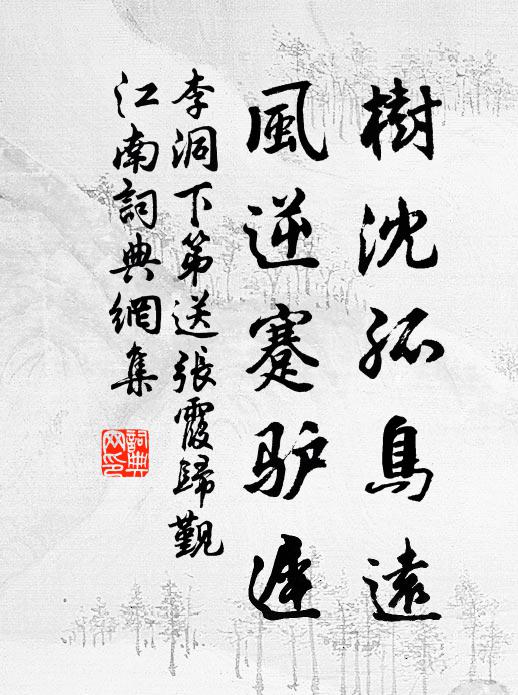 樹沈孤鳥遠
風逆蹇驴遲
李洞下第送張霞歸觐
江南詞典網集
詞典网印